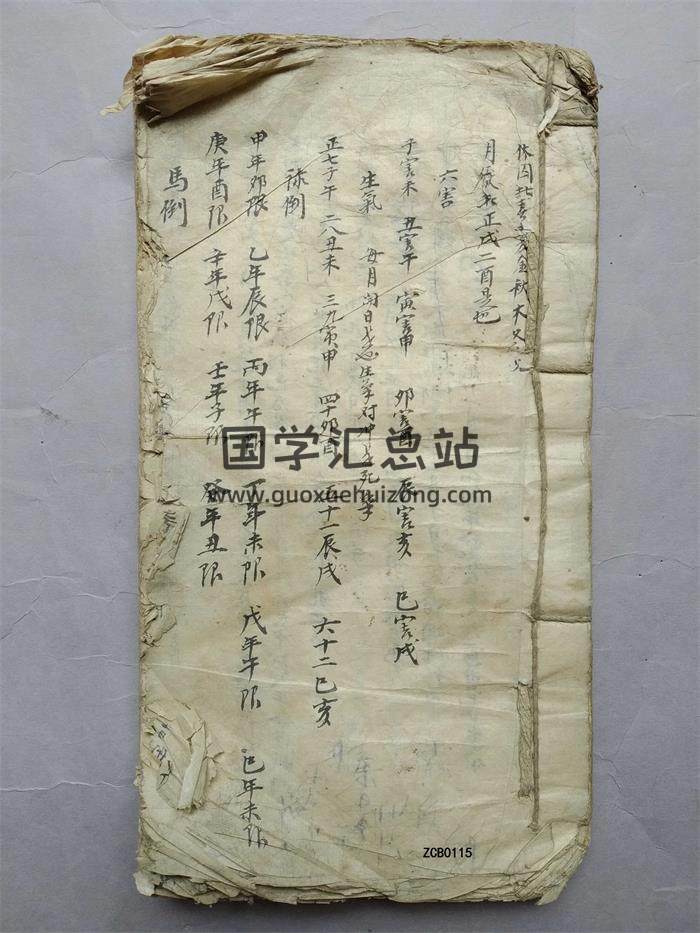 休囚 春 金秋木
月厭 正戌二酉是也
六害
子害未 丑害午 寅害申 卯害酉 辰害亥 巳害戌
生氣 每月開日是 生氣对冲是死氣
正七子午 二八丑未 三九寅申 四十卯酉 五十一辰戌 六十二巳亥
祿倒
甲年卯限 乙年辰限 丙年午限 丁年未限 戊年午限 巳年未限
庚年酉限 辛年戌限 壬年子限 癸年丑限
馬倒
国学汇总站
www.guoxuehuizong.com
ZCB0115